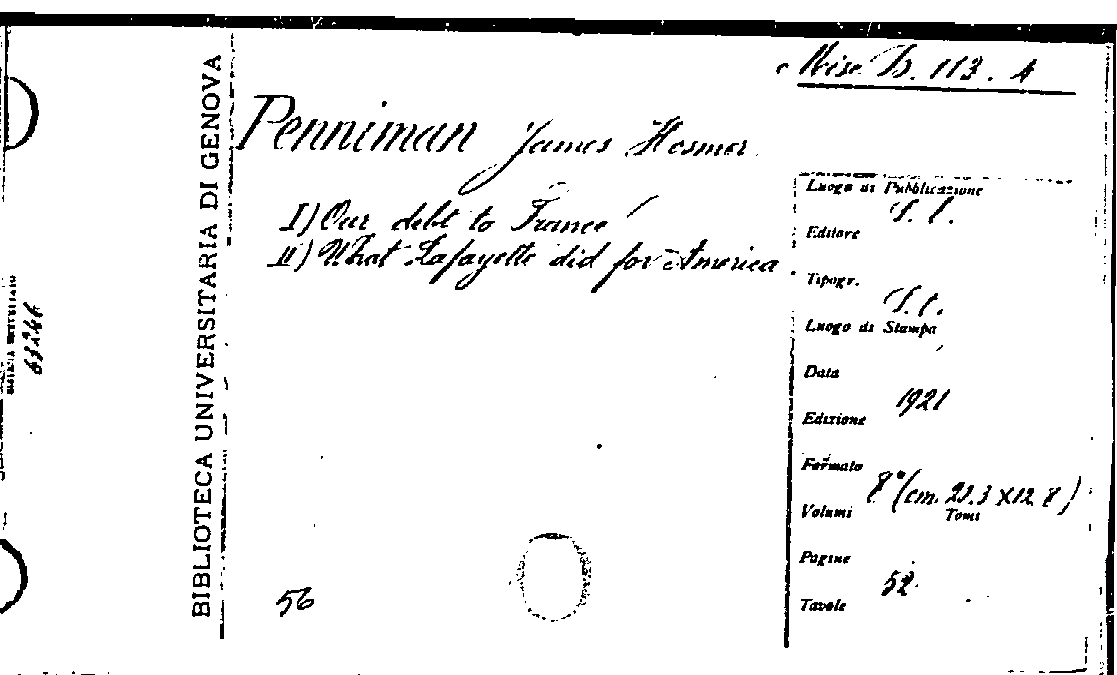 Misc. B. 113. 4
BIBLIOTECA UNIVERSITARIA DI GENOVA
Penniman James Hosmer
I) Our debt to France
II) What Lafayette did for America
Luogo di Pubblicazione
S. l.
Editore
Tipogr.
S. t.
Luogo di Stampa
Data
1921
Edizione
Formato
8° (cm. 20.3 X 12.8)
Volumi Tomi
Pagine
52
Tavole
56
63246